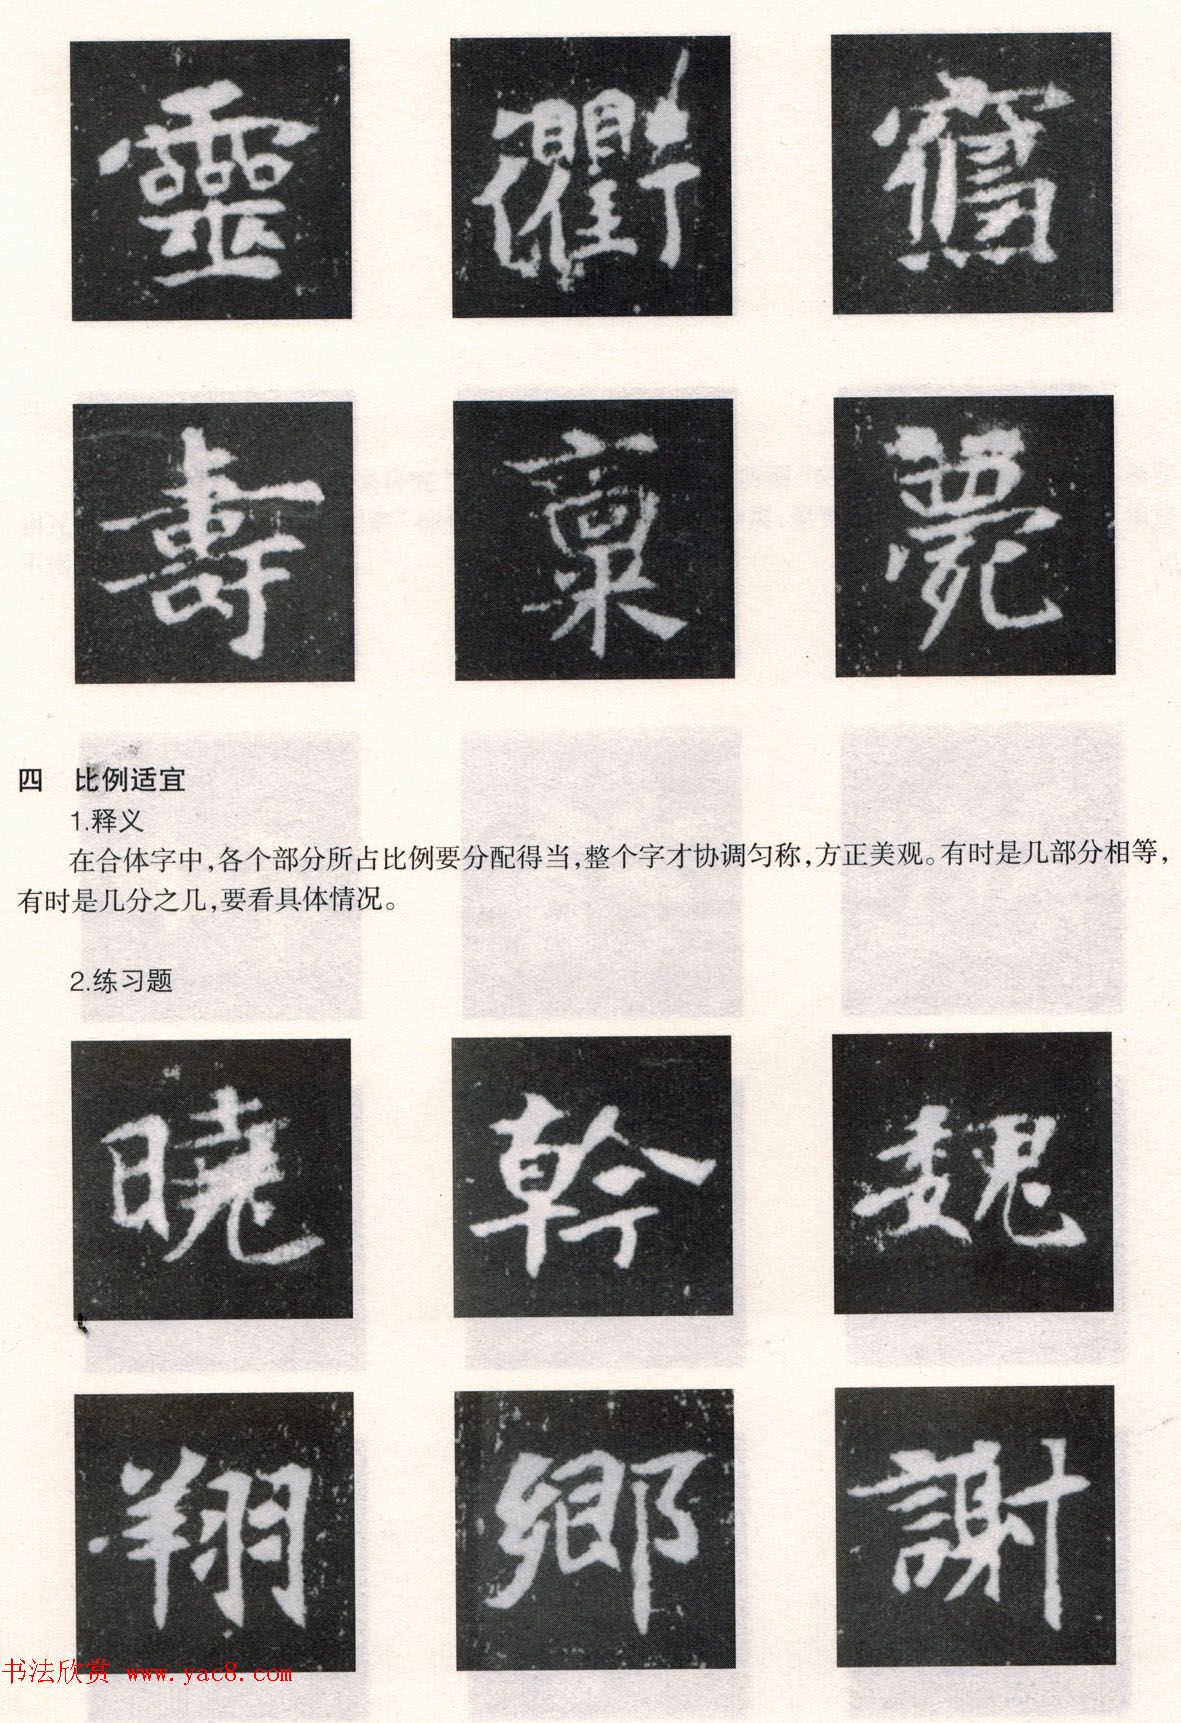 靈 衢
壽 稟 薨
四 比例适宜
1.释义
在合体字中,各个部分所占比例要分配得当,整个字才协调匀称,方正美观。有时是几部分相等,
有时是几分之几,要看具体情况。
2.练习题
曉 幹 魏
翔 鄉 謝
书法欣赏 www.yac8.com